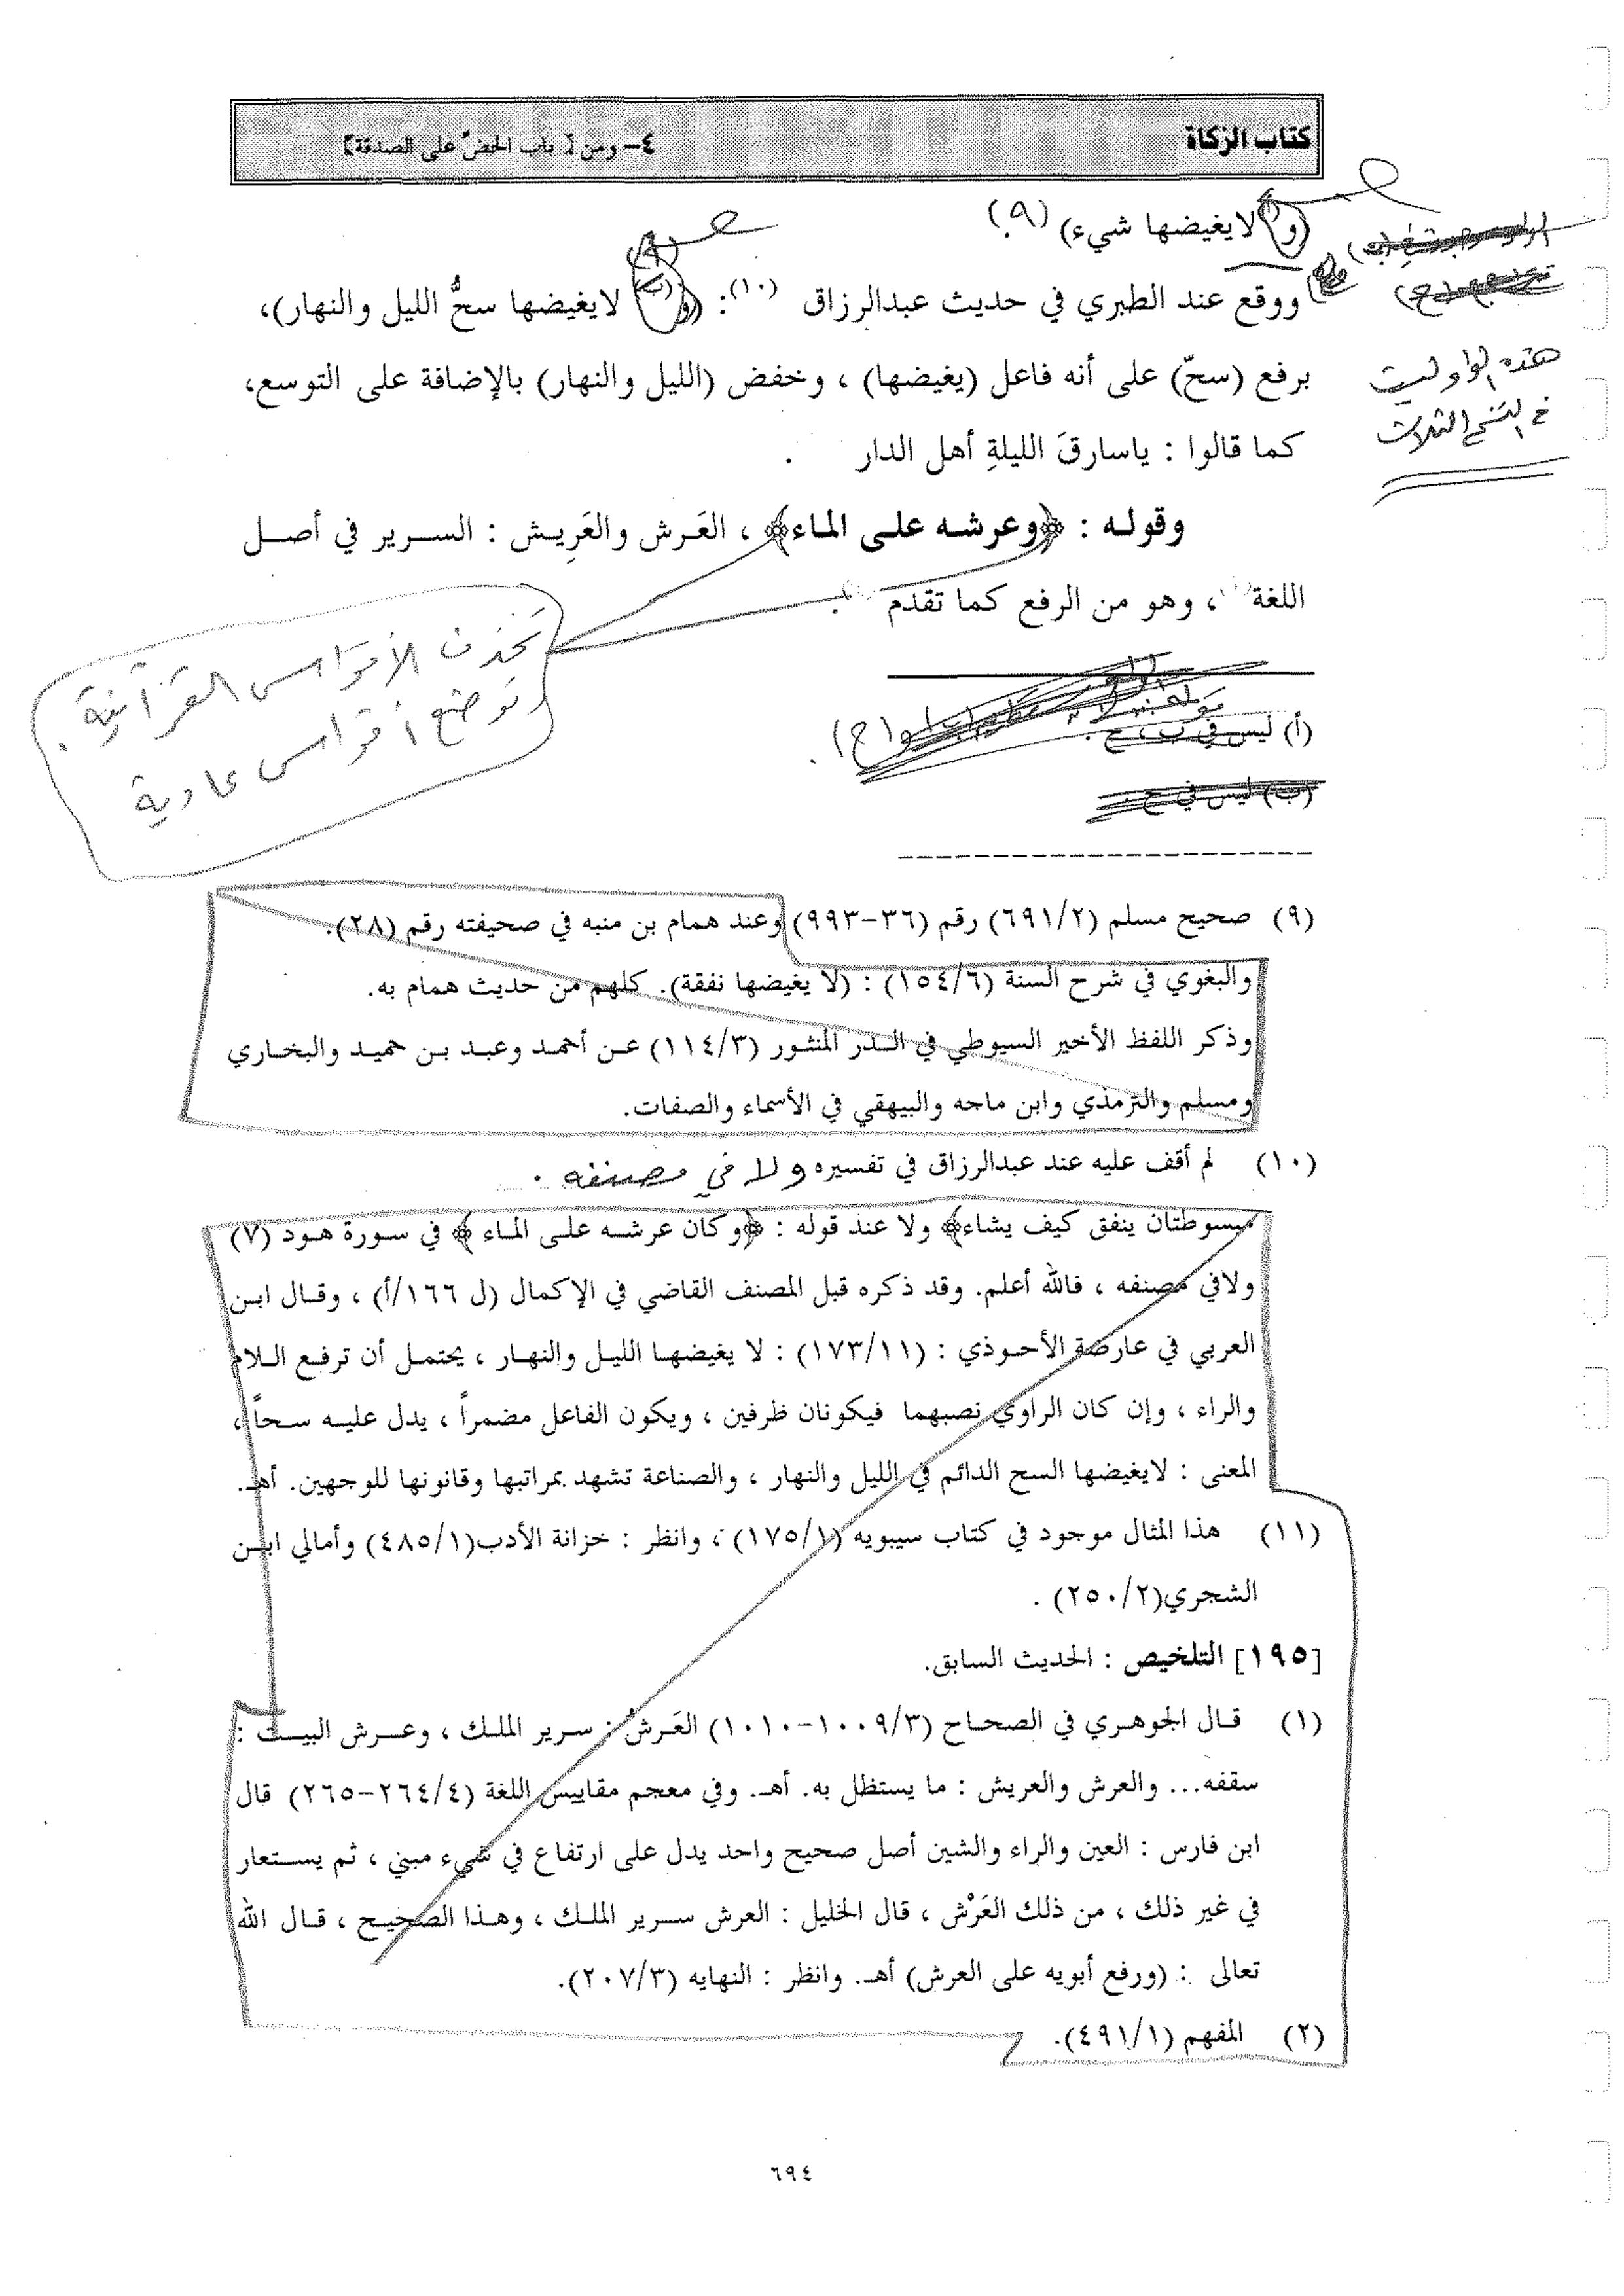 كتاب الزكاة
٤- ومن [ باب الحضّ على الصدقة]
(و لايغيضها شيء) (٩).
ووقع عند الطبري في حديث عبدالرزاق (١٠): (و لايغيضها سحُّ الليل والنهار)،
برفع (سحّ) على أنه فاعل (يغيضها) ، وخفض (الليل والنهار) بالإضافة على التوسع،
كما قالوا : ياسارقَ الليلةِ أهل الدار .
هذه الواو ليست
في النسخ الثلاث
وقولـه : ﴿وعرشـه علـى المـاء﴾ ، العَـرش والعَرِيـش : السـرير في أصـل
اللغة ، وهو من الرفع كما تقدم .
تحذف الأقواس القرآنية .
وتوضع أقواس عادية
(أ) ليس في ب ، ح .
(ب) ليس في ح .
(٩) صحيح مسلم (٦٩١/٢) رقم (٣٦-٩٩٣) وعند همام بن منبه في صحيفته رقم (٢٨).
والبغوي في شرح السنة (١٥٤/٦) : (لا يغيضها نفقة). كلهم من حديث همام به.
وذكر اللفظ الأخير السيوطي في الـدر المنثـور (١١٤/٣) عـن أحمـد وعبـد بـن حميـد والبخـاري
ومسلم والترمذي وابن ماجه والبيهقي في الأسماء والصفات.
(١٠) لم أقف عليه عند عبدالرزاق في تفسيره ولا في مصنفه .
مبسوطتان ينفق كيف يشاء﴾ ولا عند قوله : ﴿وكان عرشـه علـى المـاء ﴾ في سـورة هـود (٧)
ولافي مصنفه ، فالله أعلم. وقد ذكره قبل المصنف القاضي في الإكمال (ل ١٦٦/أ) ، وقـال ابـن
العربي في عارضة الأحـوذي : (١٧٣/١١) : لا يغيضهـا الليـل والنهـار ، يحتمـل أن ترفـع الـلام
والراء ، وإن كان الراوي نصبهما فيكونان ظرفين ، ويكون الفاعل مضمراً ، يدل عليـه سـحاً ،
المعنى : لايغيضها السح الدائم في الليل والنهار ، والصناعة تشهد بمراتبها وقانونها للوجهين. أهـ.
(١١) هذا المثال موجود في كتاب سيبويه (١٧٥/١) ، وانظر : خزانة الأدب(٤٨٥/١) وأمالي ابـن
الشجري(٢٥٠/٢) .
[١٩٥] التلخيص : الحديث السابق.
(١) قـال الجوهـري في الصحـاح (١٠٠٩/٣-١٠١٠) العَـرشُ : سـرير الملـك ، وعـرش البيـت :
سقفه... والعرش والعريش : ما يستظل به. أهـ. وفي معجم مقاييس اللغة (٢٦٤/٤-٢٦٥) قال
ابن فارس : العين والراء والشين أصل صحيح واحد يدل على ارتفاع في شيء مبني ، ثم يسـتعار
في غير ذلك ، من ذلك العَرْش ، قال الخليل : العرش سـرير الملـك ، وهـذا الصحيـح ، قـال الله
تعالى : (ورفع أبويه على العرش) أهـ. وانظر : النهايه (٢٠٧/٣).
(٢) المفهم (٤٩١/١).
٦٩٤